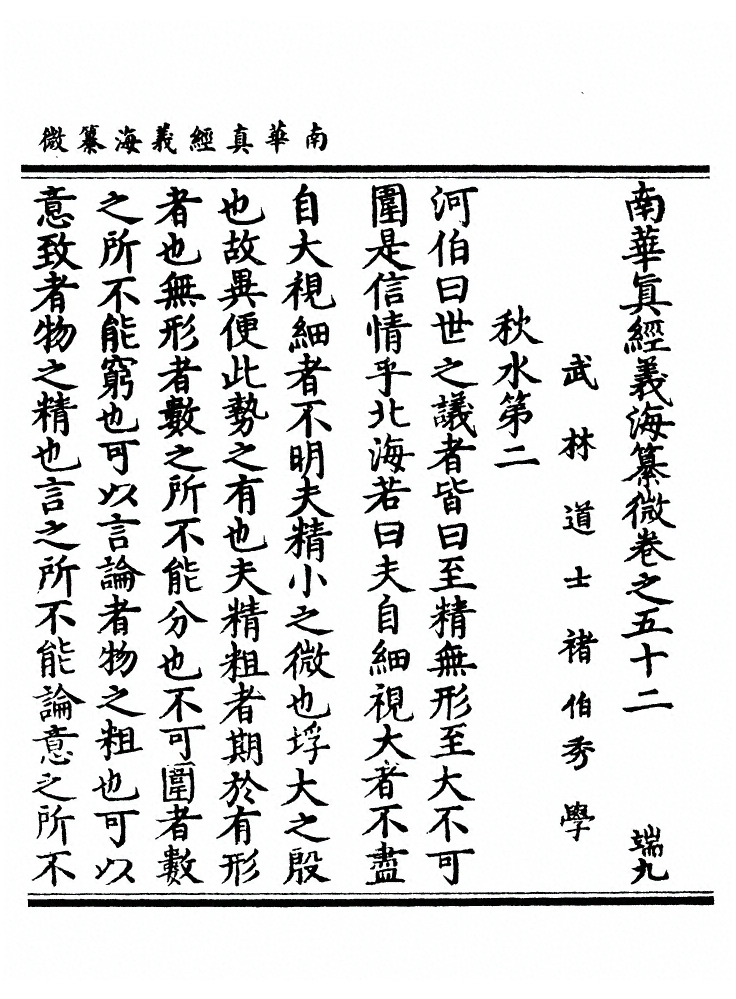 南華真經義海纂微
南華真經義海纂微卷之五十二　端九
武林道士褚伯秀學
秋水第二
河伯曰世之議者皆曰至精無形至大不可
圍是信情乎北海若曰夫自細視大者不盡
自大視細者不明夫精小之微也垺大之殷
也故異便此勢之有也夫精粗者期於有形
者也無形者數之所不能分也不可圍者數
之所不能窮也可以言論者物之粗也可以
意致者物之精也言之所不能論意之所不